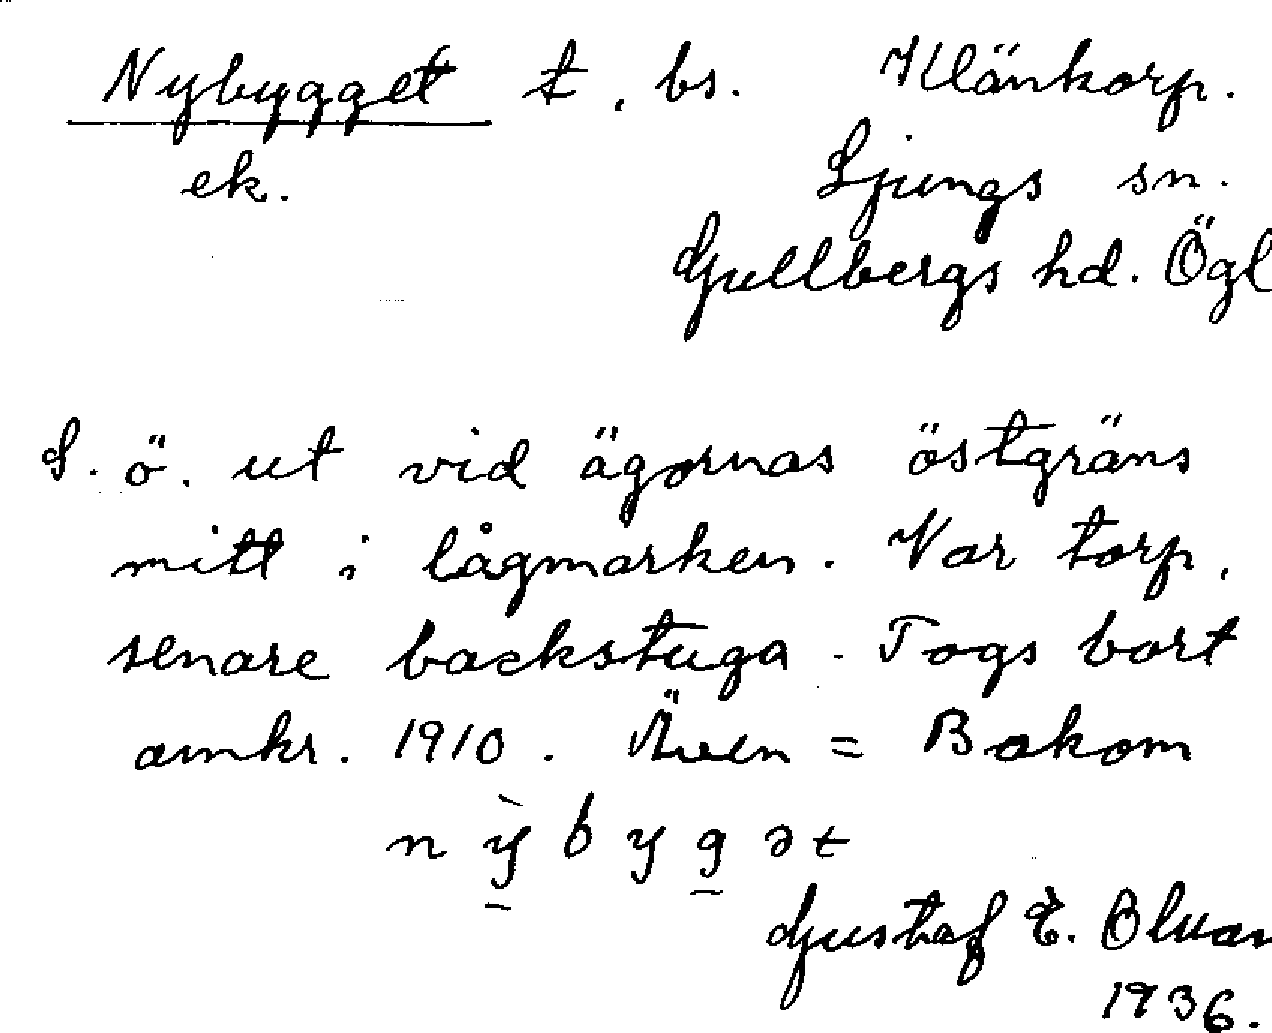 Nybygget t, bs. Klänkorp.
ek. Ljungs sn.
Gullbergs hd. Ögl
S. ö. ut vid ägornas östgräns
mitt i lågmarken. Var torp,
senare backstuga. Togs bort
omkr. 1910. Även = Bakom
n ỳ b y g ə t
Gustaf E.
1936.